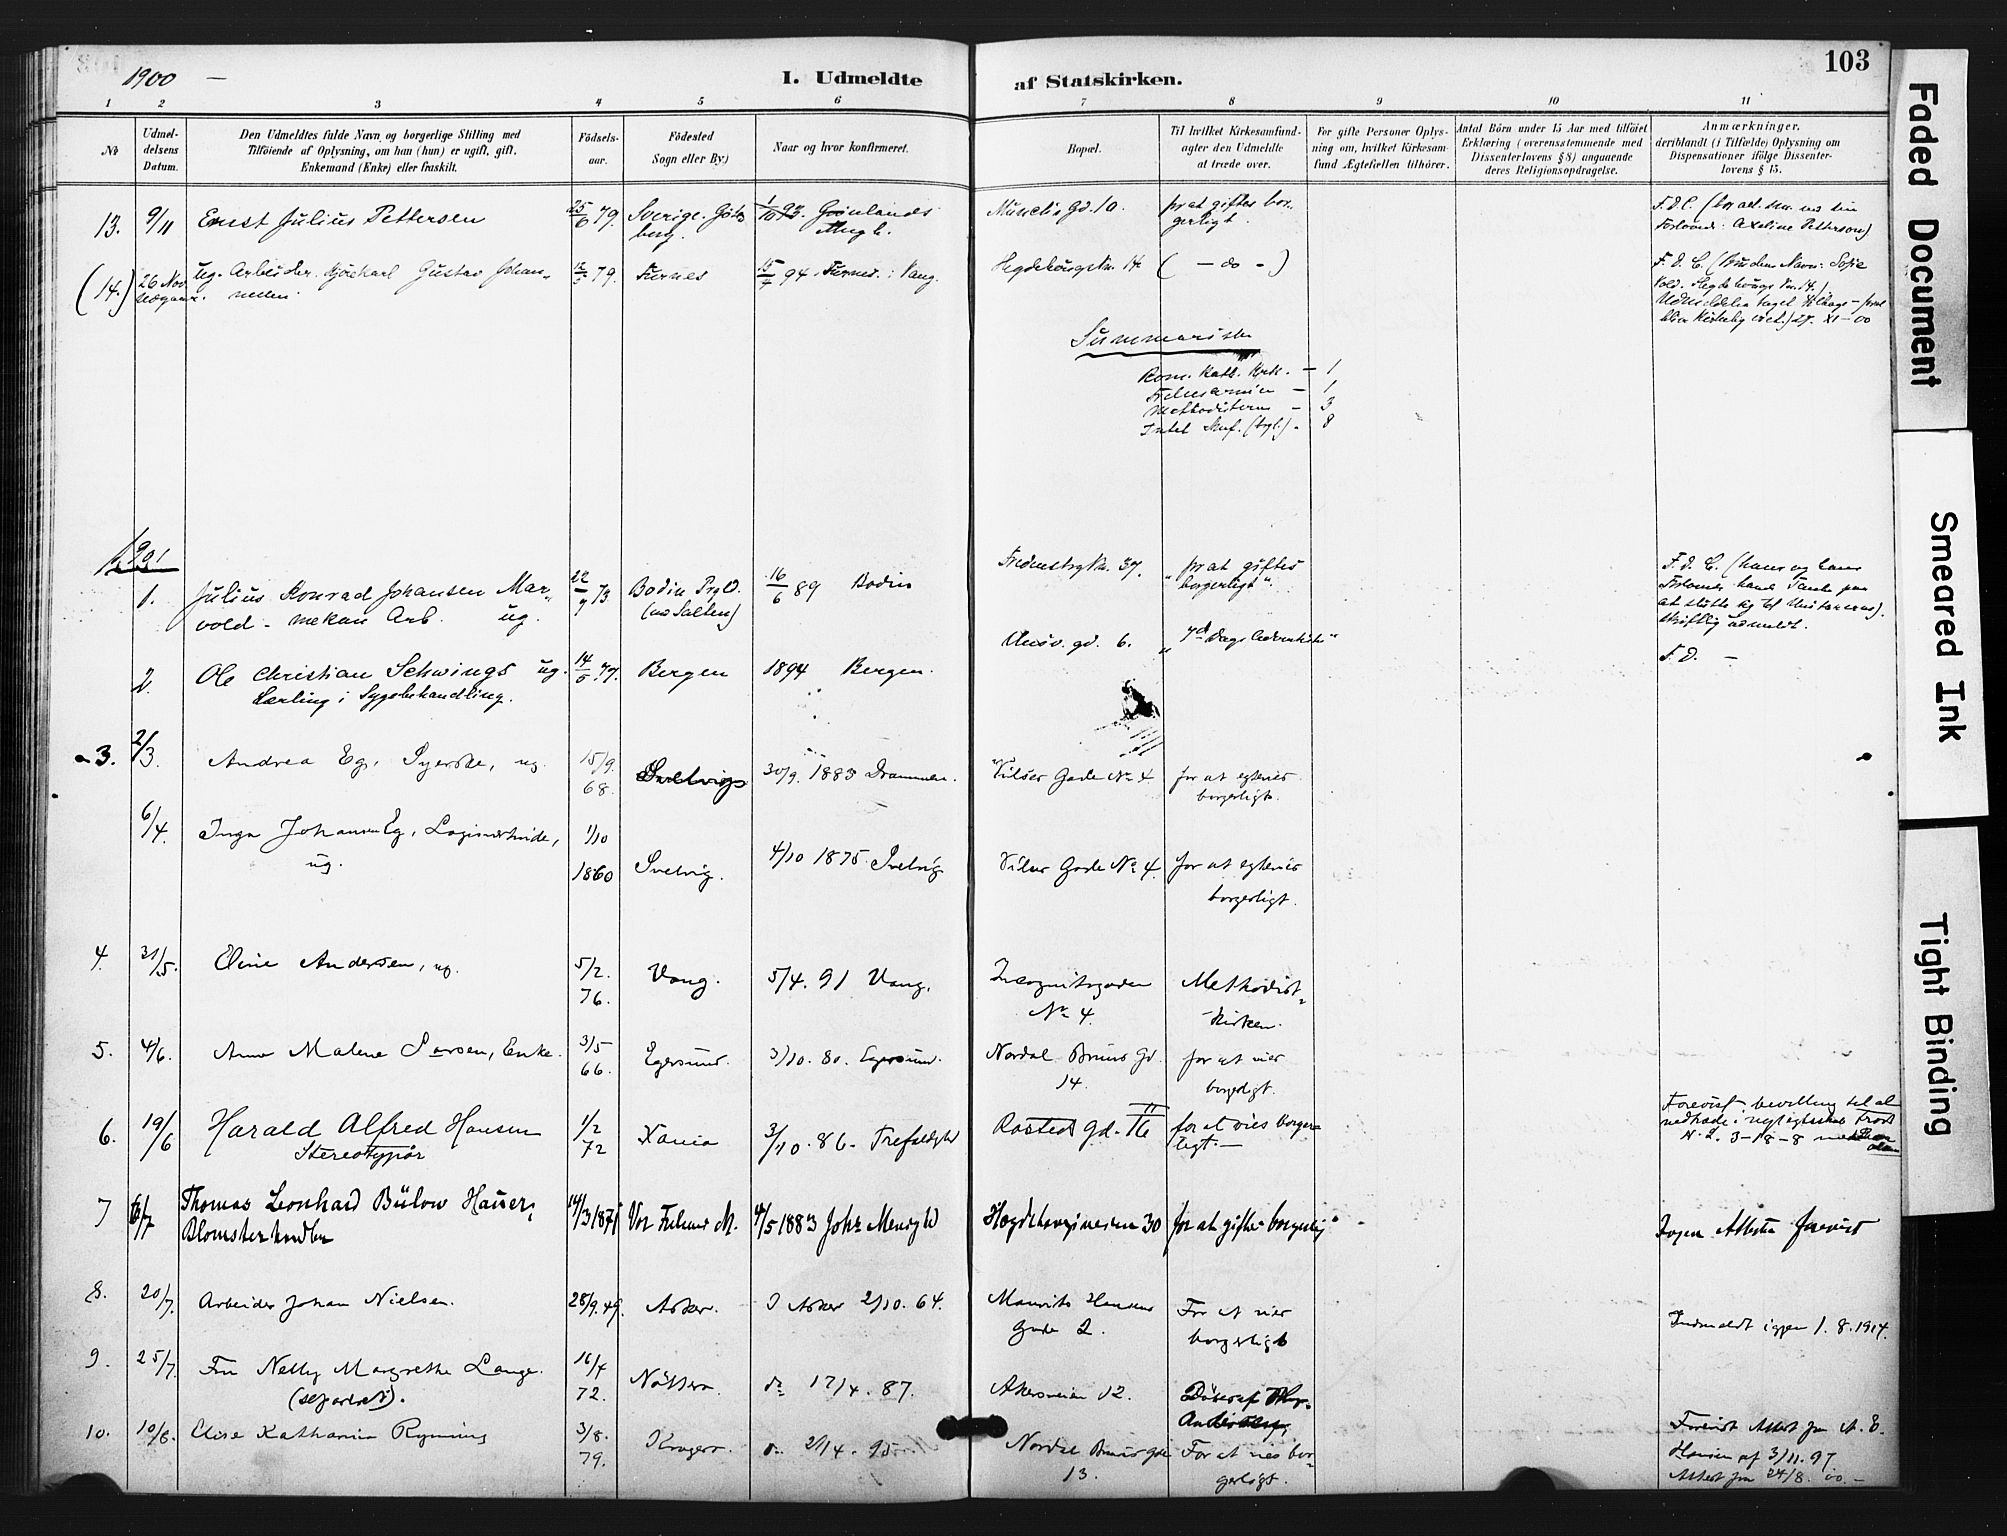 1900 —
I. Udmeldte af Statskirken.
103
1 2 3 4 5 6 7 8 9 10 11
No
Udmel-
delsens
Datum.
Den Udmeldtes fulde Navn og borgerlige Stilling med
Tilföiende af Oplysning, om han (hun) er ugift, gift,
Enkemand (Enke) eller fraskilt.
Födsels-
aar.
Födested
Sogn eller By)
Naar og hvor konfirmeret.
Bopæl.
Til hvilket Kirkesamfund-
agter den Udmeldte
at træde over.
For gifte Personer Oplys-
ning om, hvilket Kirkesam-
fund Ægtefællen tilhörer.
Antal Börn under 15 Aar med tilföiet
Erklæring (overensstemmende med
Dissenterlovens § 8) angaaende
deres Religionsopdragelse.
Anmærkninger.
deriblandt (i Tilfælde) Oplysning om
Dispensationer ifölge Dissenter-
lovens § 15.
13. 9/11 Ernst Julius Pettersen 25/6 79. Sverige. Göte
borg.
Grönlands
Mengh.
Gd. 10. for at giftes bor-
gerligt.
Axeline Pettersen)
(14.) 26 Nov. ug. Arbeider Gustav Johan-
nessen. 79. Furnes 15/7 94 Furnes. Vang.
Hegdehaugsvn. 14. ( — do — )
F. D. C. (Brudens Navn: Sofie
Vold. Hegdehaugs vn. 14.)
Udmeldelsen taget tilbage —
27. XI - 00
Summarisk
Rom. Kath. Kirk. — 1
Frelsesarmeen — 1
Methodisterne — 3
Intet Smf. (Bgl.) - 8
1901
1. Julius Konrad Johansen Mar-
vold - mekan. Arb. ug.
73 Bodin Prgld.
(ved Salten)
16/6 89 Bodin
37. "for at giftes
borgerligt".
F. D. C. (hans og hans
skriftlig udmeldt.
2. Ole Christian Schwings ug.
Lærling i Sygebehandling.
14/5 77. Bergen 1894 Bergen.
gd. 6. "7de Dags Adventister"
F. D. —
3. 2/3. Andrea Eg, Syerske, ug.
15/9.
68.
Svelvig 30/9. 1883 Drammen.
Vilses Gade No 4 for at egtevies
borgerligt.
6/4. Inga Johansen Eg, Logivertinde,
ug.
1/10
1860
Svelvig. 4/10 1875 Svelvig
Vilses Gade No 4. for at egtevies
borgerligt.
4. 31/5. Eline Andersen, ug.
5/2.
76.
Vang. 5/4. 91 Vang.
Incognitogaden
No 4.
Methodist-
kirken.
5. 4/6. Anna Malene Larsen, Enke.
3/5
66.
Egersund. 3/10. 80. Egersund.
Nordal Bruns Gd.
14.
for at vies
borgerligt.
6. 19/6 Harald Alfred Hansen
Stereotypör
1/2
72
Xania 3/10. 86. Trefoldighd
Rosteds Gd. for at vies borger-
ligt. —
Forevist bevilling til at
N. L. 3 - 18 - 8
7 6/7 Thomas Leonhard Bülow Hauer,
Blomsterhandler
14/3 1871 Vor Frelsers M. 4/5 1883 Johs Menighd
Hegdehaugsveien 30 for at giftes borgerlig
Ingen Attester forevist
8. 20/7. Arbeider Johan Nielsen.
28/9. 49. Asker. I Asker 2/10. 64.
Mauritz Hansens
Gade 2.
For at vies
borgerligt
Indmeldt igjen 1. 8. 1914.
9. 25/7. Fru Nelly Margrethe Lange.
(separeret).
16/4
72.
Nötterö. do 17/4. 87.
Akersveien 12.
10. 10/8. Elise Kathania Ryning
3/8.
79.
Kragerö. do 21/4. 95.
Nordal Bruns Gde
13.
For at vies bor-
gerligt.
Forevist Attest fra A. E.
Hansen af 3/11. 97
Attest fra 24/8. 00. —
Faded Document
Smeared Ink
Tight Binding